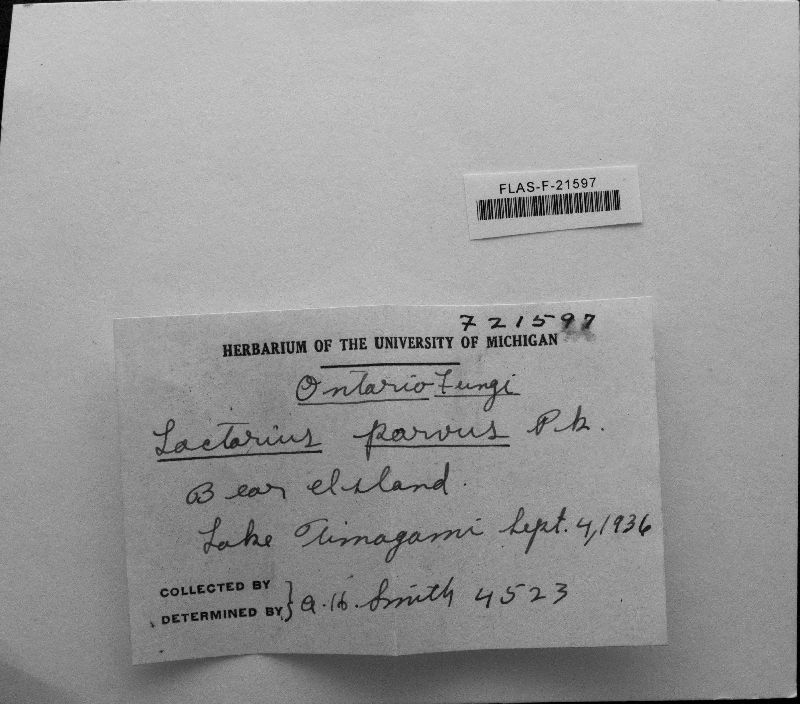 FLAS-F-21597
F21597
HERBARIUM OF THE UNIVERSITY OF MICHIGAN
Ontario Fungi
Lactarius parvus Pk.
Bear Island.
Lake Timagami Sept. 4, 1936
COLLECTED BY
DETERMINED BY } A. H. Smith 4523